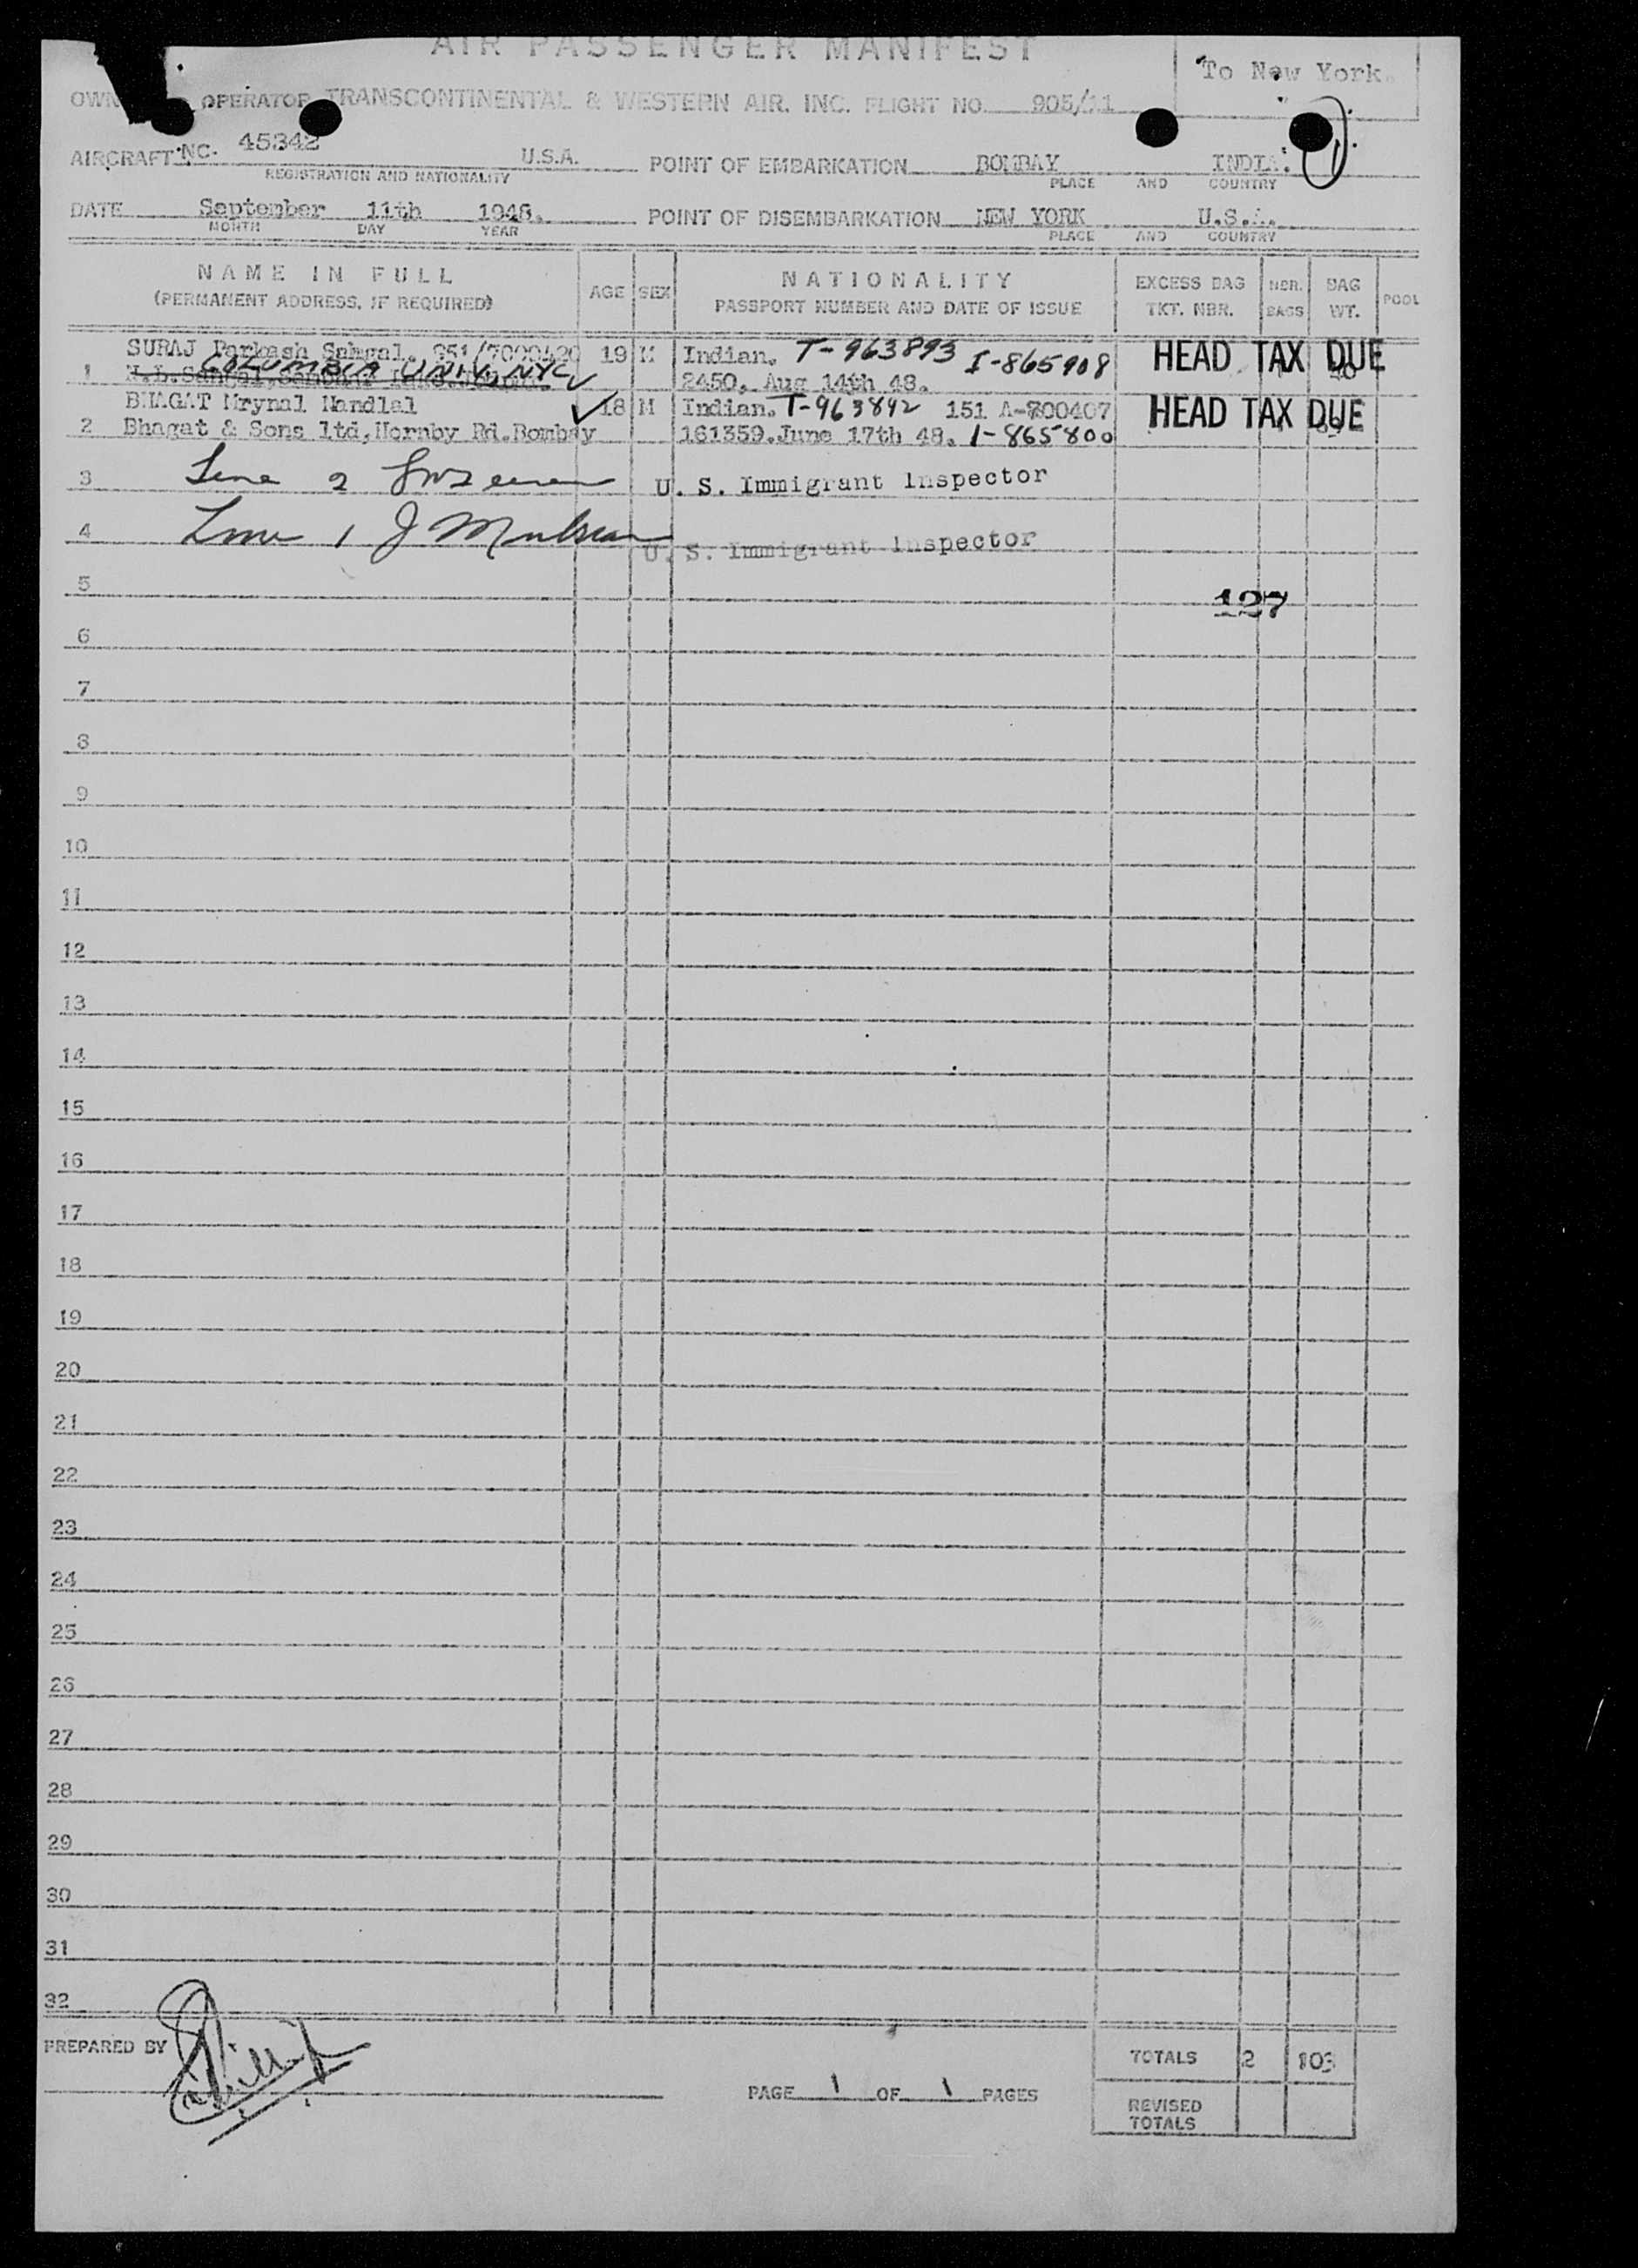 AIR PASSENGER MANIFEST
To New York.
OPERATOR TRANSCONTINENTAL & WESTERN AIR, INC. FLIGHT NO. 905/11
AIRCRAFT NC. 45342 U.S.A. POINT OF EMBARKATION BOMBAY INDIA.
REGISTRATION AND NATIONALITY PLACE AND COUNTRY
DATE September 11th 1948. POINT OF DISEMBARKATION NEW YORK U.S.A.
MONTH DAY YEAR PLACE AND COUNTRY
NAME IN FULL AGE SEX NATIONALITY EXCESS BAG NBR. BAG POOL
(PERMANENT ADDRESS, IF REQUIRED) PASSPORT NUMBER AND DATE OF ISSUE TKT. NBR. BAGS WT.
SURAJ Parkash Sehgal. 19 M Indian. T-963893 I-865908 HEAD TAX DUE
COLUMBIA UNIV. NYC
1 2450, Aug 14th 48.
BHAGAT Mrynal Nandlal 18 M Indian. T-963892 151 A-700407 HEAD TAX DUE
2 Bhagat & Sons ltd, Hornby Rd. Bombay 161359. June 17th 48. I-865800
3 Line 2 U. S. Immigrant Inspector
4 Line 1 J U. S. Immigrant Inspector
5 127
6
7
8
9
10
11
12
13
14
15
16
17
18
19
20
21
22
23
24
25
26
27
28
29
30
31
32
PREPARED BY
TOTALS 2 103
PAGE 1 OF 1 PAGES
REVISED
TOTALS